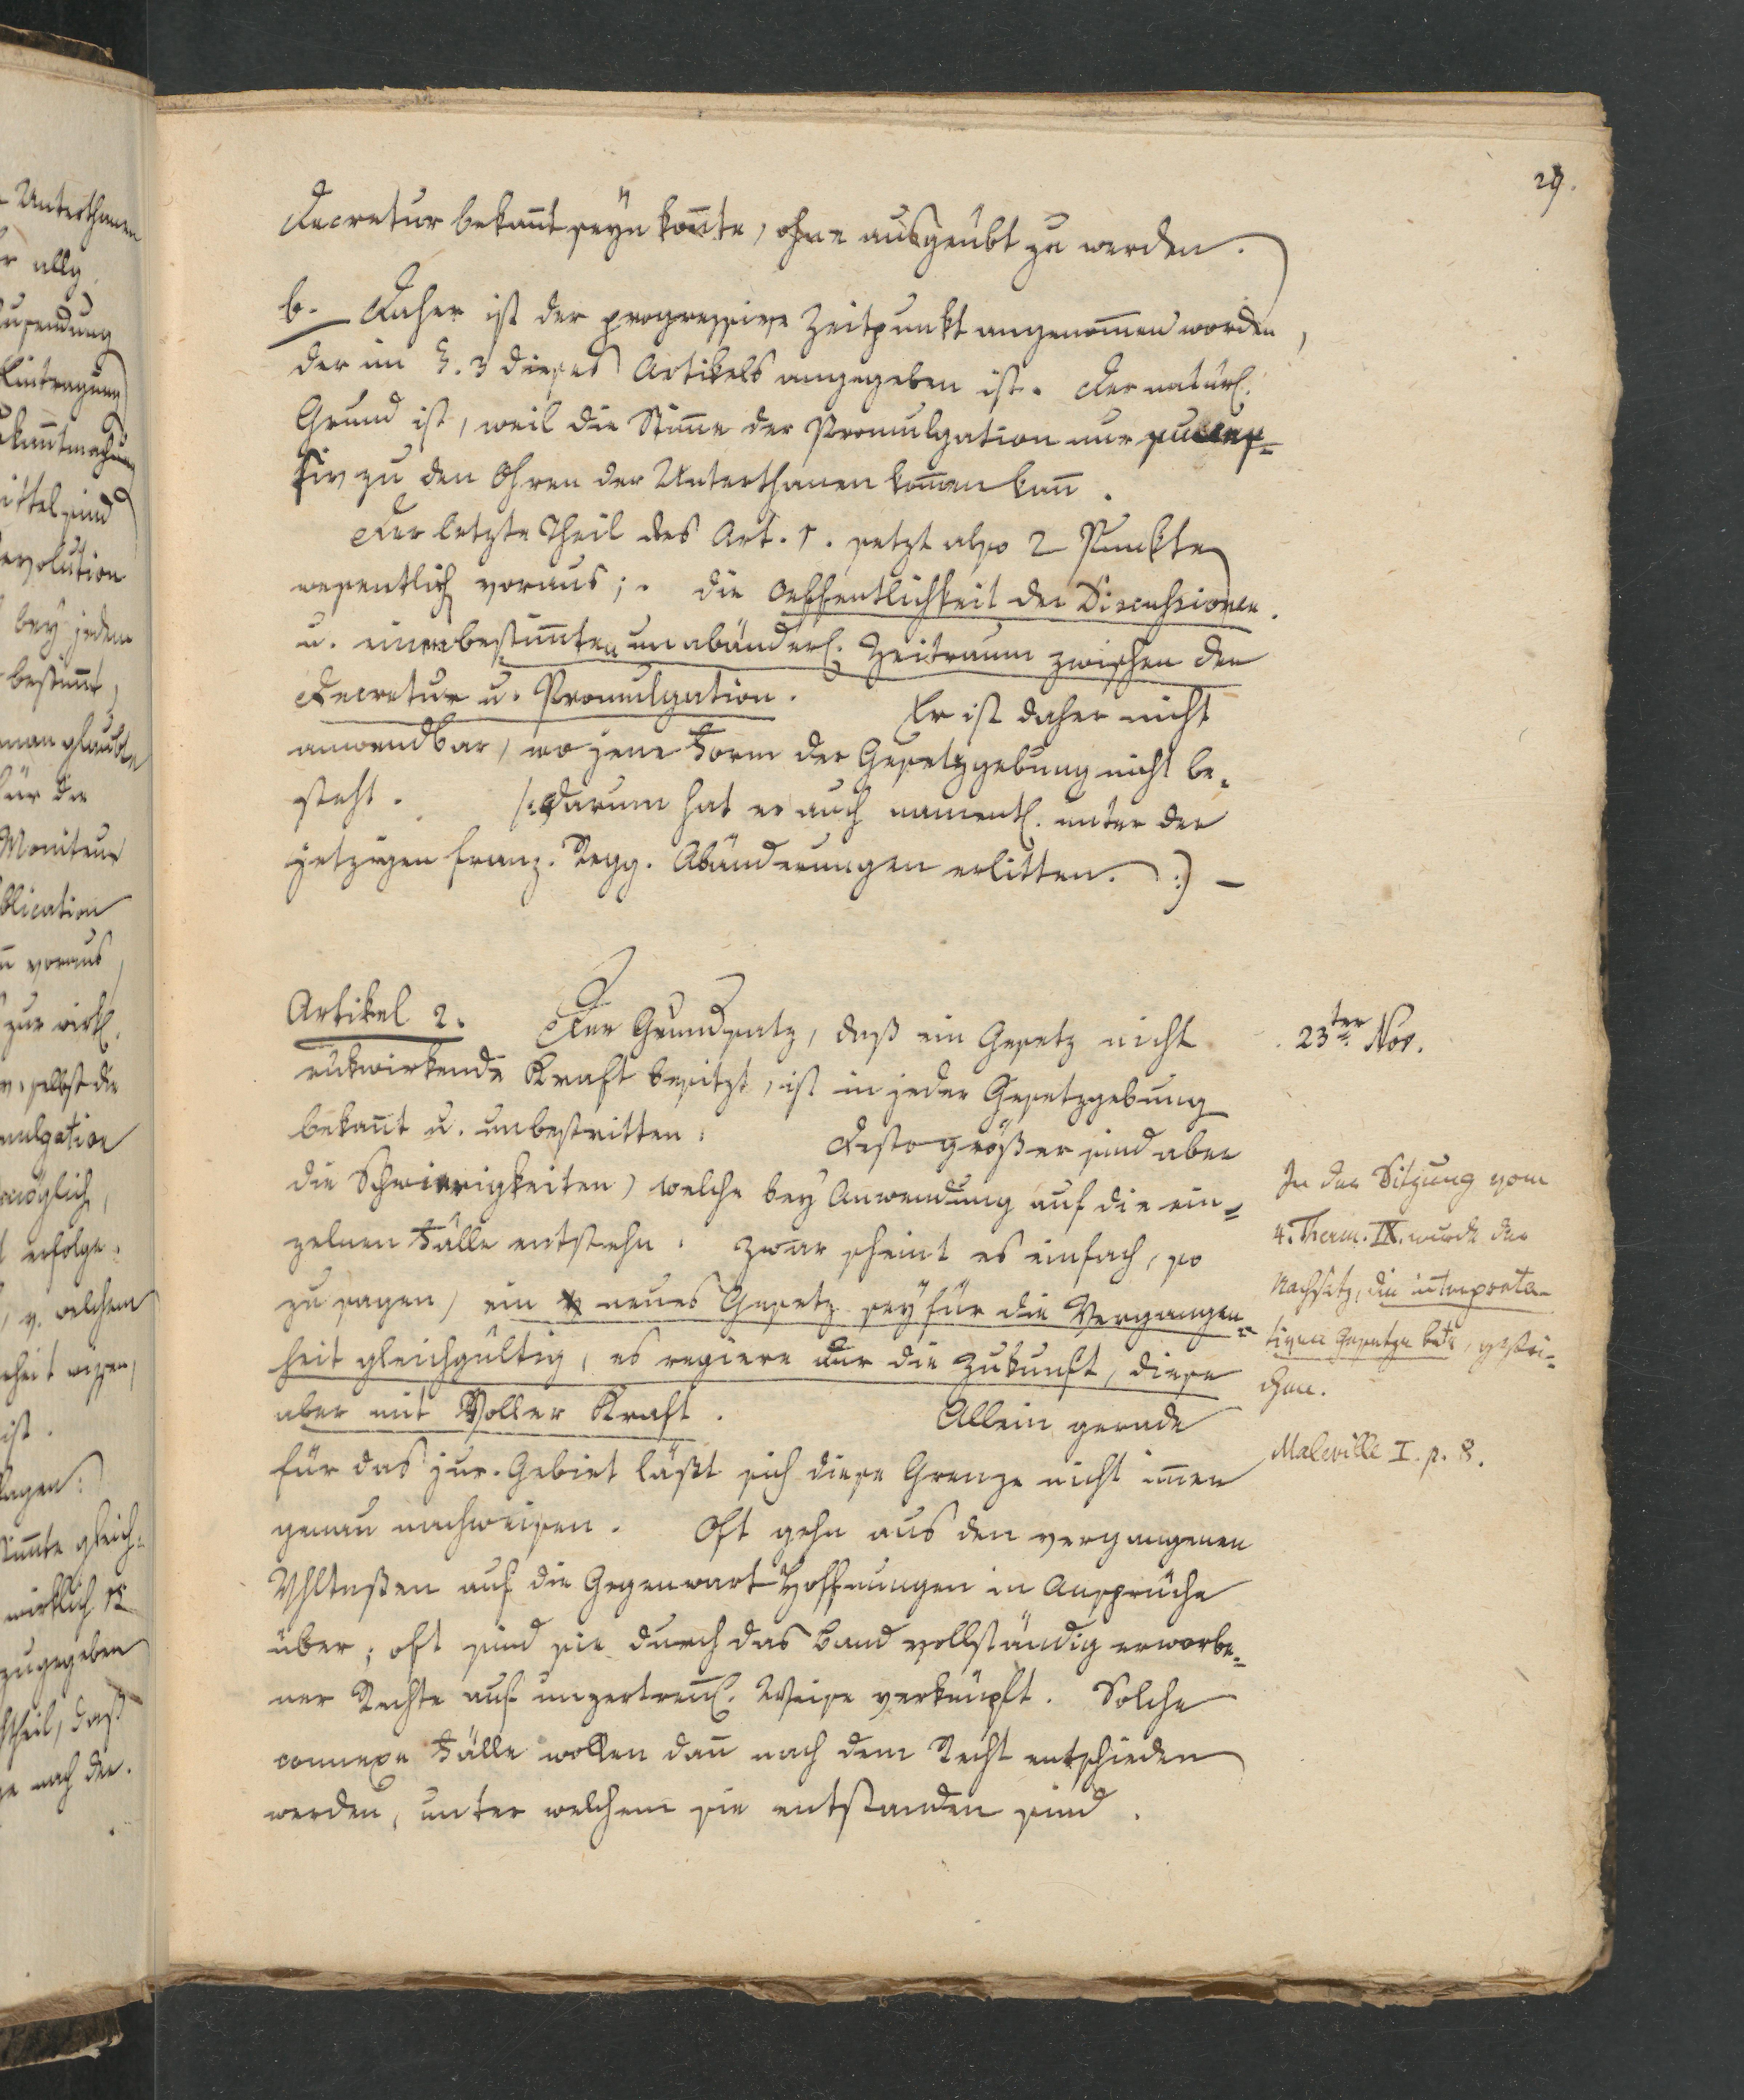 29.
Decretur bekannt seyn konnte, ohne ausgeübt zu werden.
b. Daher ist der progressive Zeitpunkt angenommen worden,
der im §. 3 dieses Artikels angegeben ist. Der natürl.
Grund ist, weil die Stimme der Promulgation nur succes=
siv zu den Ohren der Unterthanen kommen kann.
Der letzte Theil des Art. 1. setzt also 2 Punkte
wesentlich voraus; die Oeffentlichkeit der Discussionen.
u. einen bestimmten unabänderl. Zeitraum zwischen der
Decretur u. Promulgation. Er ist daher nicht
anwendbar, wo jene Form der Gesetzgebung nicht be=
steht. /: Darum hat er auch namentl. unter der
jetzigen franz. Regg. Abänderungen erlitten. :) —
Artikel 2. Der Grundsatz, daß ein Gesetz nicht
rükwirkende Kraft besitzt, ist in jeder Gesetzgebung
bekannt u. unbestritten. Desto größer sind aber
die Schwierigkeiten, welche bey Anwendung auf die ein=
zelnen Fälle entstehn. Zwar scheint es einfach, so
zu sagen, ein neues Gesetz sey für die Vergangen=
heit gleichgültig, es regiere nur die Zukunft, diese
aber mit voller Kraft. Allein gerade
für das jur. Gebiet läßt sich diese Grenze nicht immer
genau nachweisen. Oft gehn aus den vergangenen
Vhltnßen auf die Gegenwart Hoffnungen in Ansprüche
über; oft sind sie durch das Band vollständig erworbe=
ner Rechte auf unzertrennl. Weise verknüpft. Solche
connexe Fälle wollen dann nach dem Recht entschieden
werden, unter welchem sie entstanden sind.
23ter Nov.
In der Sitzung vom
4. Therm. IX. wurde der
Nachsatz, die interpreta=
tiven Gesetze betr, gestri=
chen.
Maleville I. p. 8.